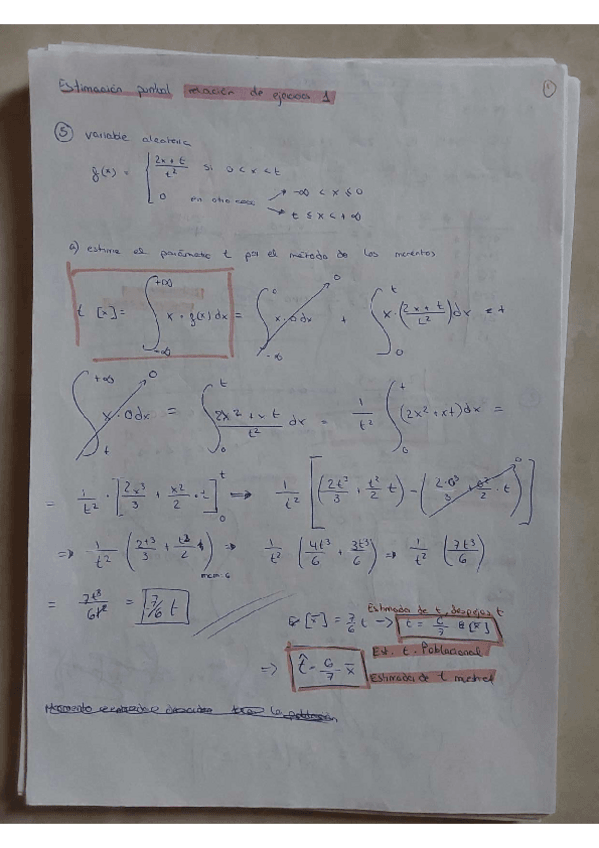 1
Estimación puntual relación de ejercicios 1
5 variable aleatoria
f(x) = { 2x + t / t² si 0 < x < t
0 en otro caso → -∞ < x ≤ 0
→ t ≤ x < +∞
a) estime el parámetro t por el método de los momentos
[x] = ∫_{-∞}^{+∞} x · f(x) dx = ∫_{-∞}^{0} x · 0 dx → 0 + ∫_{0}^{t} x · (2x + t / t²) dx +
∫_{t}^{+∞} x · 0 dx → 0 = ∫_{0}^{t} 2x² + x t / t² dx = 1/t² ∫_{0}^{t} (2x² + xt) dx =
= 1/t² · [2x³/3 + x²/2 · t]_{0}^{t} => 1/t² [(2t³/3 + t²/2 t) - (2·0³/3 + 0²/2 · t)] → 0
=> 1/t² (2t³/3 + t³/2) => 1/t² (4t³/6 + 3t³/6) => 1/t² (7t³/6)
mcm = 6
= 7t³/6t² = 7/6 t
Estimada de t, despejas t
[x] = 7/6 t -> t = 6/7 · [x]
Est. t. Poblacional
=> t̂ = 6/7 - x̄
Estimada de t muestral